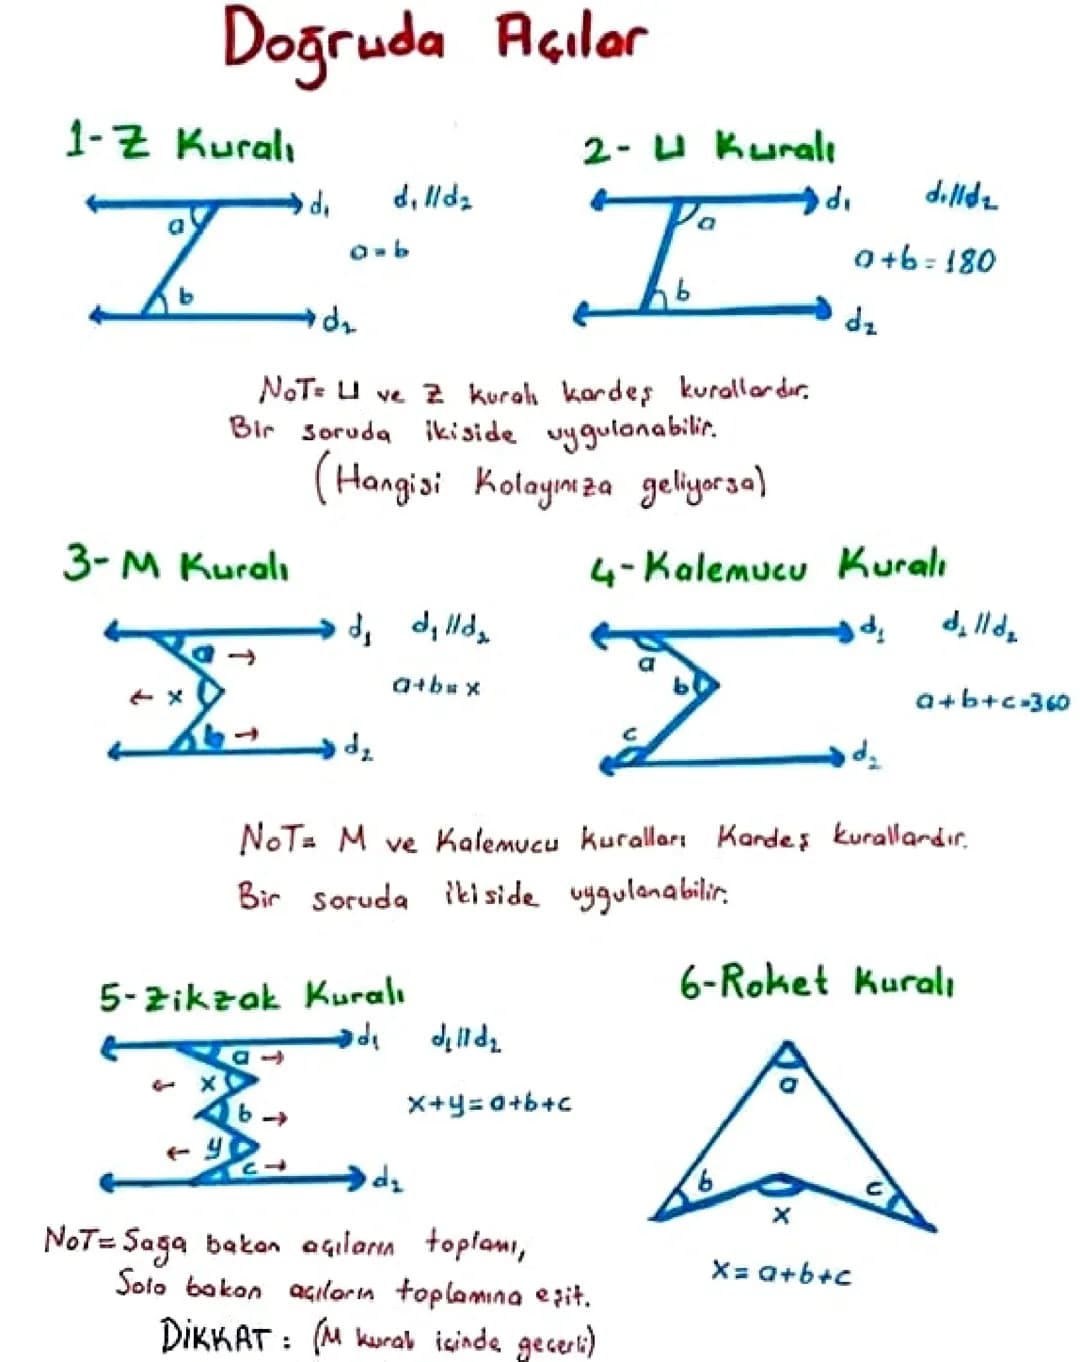 Doğruda Açılar
1- Z Kuralı
d₁
d₁ // d₂
a
a = b
b
d₂
2- U Kuralı
d₁
d₁ // d₂
a
a + b = 180
b
d₂
NOT= U ve Z kuralı kardeş kurallardır.
Bir soruda ikiside uygulanabilir.
(Hangisi Kolayınıza geliyorsa)
3- M Kuralı
d₁
d₁ // d₂
a →
← x
a+b = x
b →
d₂
4- Kalemucu Kuralı
d₁
d₁ // d₂
a
b
a+b+c=360
c
d₂
NOT= M ve Kalemucu Kuralları Kardeş kurallardır.
Bir soruda ikiside uygulanabilir.
5- Zikzak Kuralı
d₁
d₁ // d₂
a →
← x
x+y=a+b+c
b →
← y
c →
d₂
NOT= Saga bakan açıların toplamı,
Sola bakan açıların toplamına eşit.
DİKKAT : (M kuralı içinde geçerli)
6- Roket Kuralı
a
b
c
x
x = a+b+c